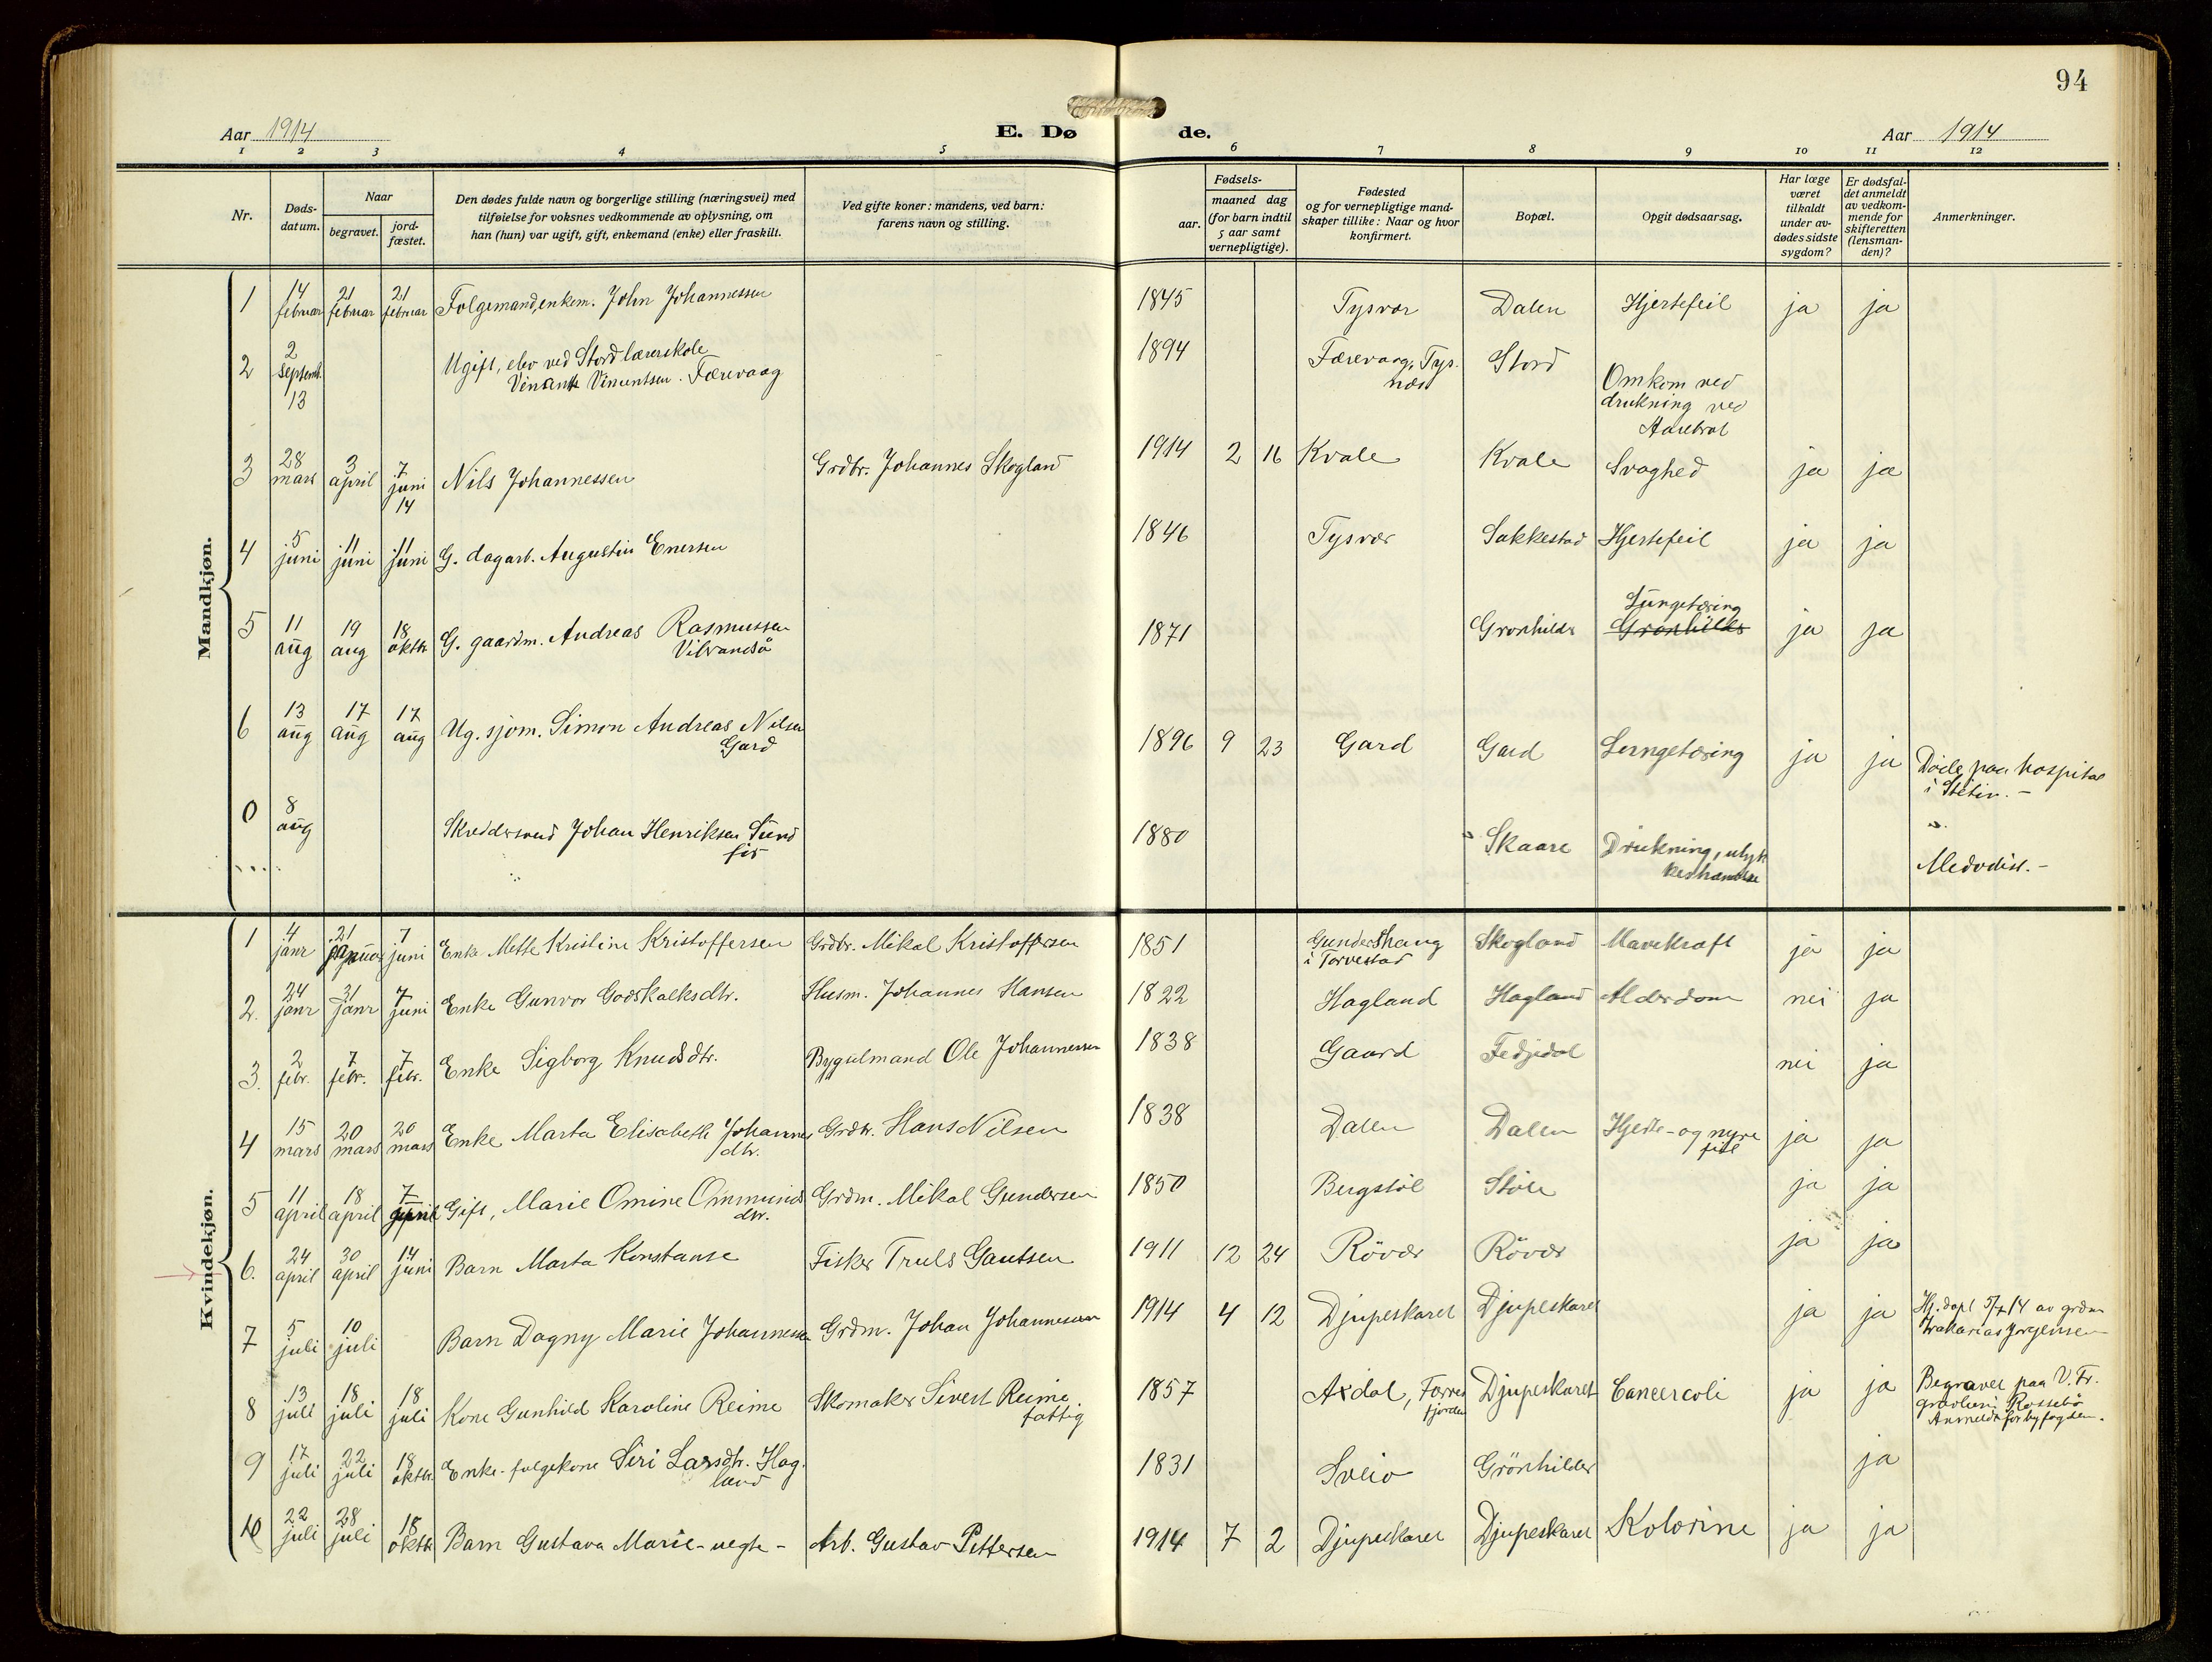 94
Aar 1914 E. Dø de. Aar 1914
1 2 3 4 5 6 7 8 9 10 11 12
Nr. Døds-datum. Naar begravet. jord-fæstet. Den dødes fulde navn og borgerlige stilling (næringsvei) med tilføielse for voksnes vedkommende av oplysning, om han (hun) var ugift, gift, enkemand (enke) eller fraskilt. Ved gifte koner: mandens, ved barn: farens navn og stilling. Fødsels- aar. maaned dag (for barn indtil 5 aar samt vernepligtige). Fødested og for vernepligtige mandskaper tillike: Naar og hvor konfirmert. Bopæl. Opgit dødsaarsag. Har læge været tilkaldt under avdødes sidste sygdom? Er dødsfaldet anmeldt av vedkommende for skifteretten (lensmanden)? Anmerkninger.
Mandkjøn.
1 14 februar 21 februar 21 februar Folgemand, enkem. John Johannessen 1845 Tysvær Dalen Hjertefeil ja ja
2 2 septemb. 13 Ugift, elev ved Stord lærerskole Vincents Vincentsen Færevaag 1894 Færevaag, Tysnæs Stord Omkom ved drukning ved
3 28 mars 3 april 7 juni 14 Nils Johannessen Grdbr. Johannes Skogland 1914 2 16 Kvale Kvale Svaghed ja ja
4 5 juni 11 juni 11 juni G. dagarb. Augustin Enersen 1846 Tysvær Sakkestad Hjertefeil ja ja
5 11 aug 19 aug 18 oktbr G. gaardm. Andreas Rasmussen Vibrandsö 1871 Grønhilder Lungetæring Grønhilder ja ja
6 13 aug 17 aug 17 aug Ug. sjøm. Simon Andreas Nilsen Gard 1896 9 23 Gard Gard Lungetæring ja ja Døde paa hospital i Stetin. -
0 8 aug Skreddersvend Johan Henriksen Sundfør 1880 Skaare Drukning, ulykkeshændelse Medodist. -
Kvindekjøn.
1 4 janr 21 januar 7 juni Enke Mette Kristine Kristoffersen Grdbr. Mikal Kristoffersen 1851 Gundershaug i Torvestad Skogland Mavekræft ja ja
2. 24 janr 31 janr 7 juni Enke Gunvor Godskalksdtr. Husm. Johannes Hansen 1822 Hagland Hagland Alderdom nei ja
3. 2 febr. 7 febr. 7 febr. Enke Sigborg Knudsdtr. Bygselmand Ole Johannessen 1838 Gaard Fedjedal nei ja
4 15 mars 20 mars 20 mars Enke Marta Elisabeth Johannesdtr. Grdbr. Hans Nilsen 1838 Dalen Dalen Hjerte- og nyrefeil ja ja
5 11 april 18 april 7 Gift, Marie Omine Ommundsdtr. Grdm. Mikal Gundersen 1850 Bugstøl Støle ja ja
6. 24 april 30 april 14 juni Barn Marta Konstanse Fisker Truls Gautsen 1911 12 24 Rövær Rövær ja ja
7 5 juli 10 juli Barn Dagny Marie Johannessen Grdm. Johan Johannessen 1914 4 12 Djupeskaret Djupeskaret ja ja Hj.døpt 5/7 14 av grdm Zrakarias Jørgensen
8 13 juli 18 juli 18 juli Kone Gunhild Karoline Reime Skomaker Sivert Reime fattig 1857 Axdal, Førresfjorden Djupeskaret Cancer coli ja ja Begravet paa V. Fr. gravlien Rossebö Anmeldt for byfogden.
9 17 juli 22 juli 18 oktbr. Enke-følgekone Siri Larsdtr. Hagland 1831 Sveio Grönhilder ja
10 22 juli 28 juli 18 oktbr Barn Gustava Marie - uegte - Arb. Gustav Pettersen 1914 7 2 Djupeskaret Djupeskaret Kolorine ja ja